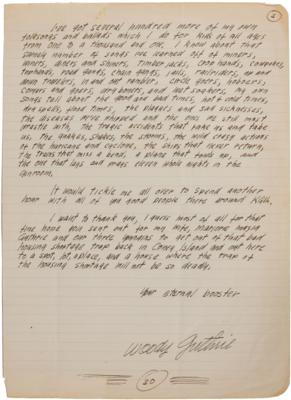 2
I've got several hundred more of my own
folksongs and ballads which I do for kids of all ages
from one to a thousand and one. I know about that
same number of songs I've learned off of miners,
diners and shiners, timber jacks, crop hands, cowpokes,
tramhands, road gangs, chain gangs,
other travelers, in and out rambler,
comers and goers, dry bones, and hot sash ers, my own
songs tell about the good and bad times, hot & cold times,
dry spells, flood times, the plagues and sad sicknesses,
the diseases we've whipped and the ones we still must
wrestle with, the tragic accidents that make us and take
us, the quakes, shakes, the storms, the wild crazy actions
of the hurricane and cyclone, the ships that never return,
the trains that miss a bend, a plane that goes up, and
the one that lays and prays eleven whole nights in the
ginroom.
It would tickle me all over to spend another
hour with all of you good people there around KGER,
I want to thank you, I guess most of all for that
fine home you sent out for my wife, Marjorie Mazia
Guthrie and our three younguns to get out of that bad
housing shortage trap back in Coney Island and out here
to a spot, lot, &place, and a house where the trap of
the housing shortage will not be so deadly.
Your eternal booster
Woody Guthrie
30